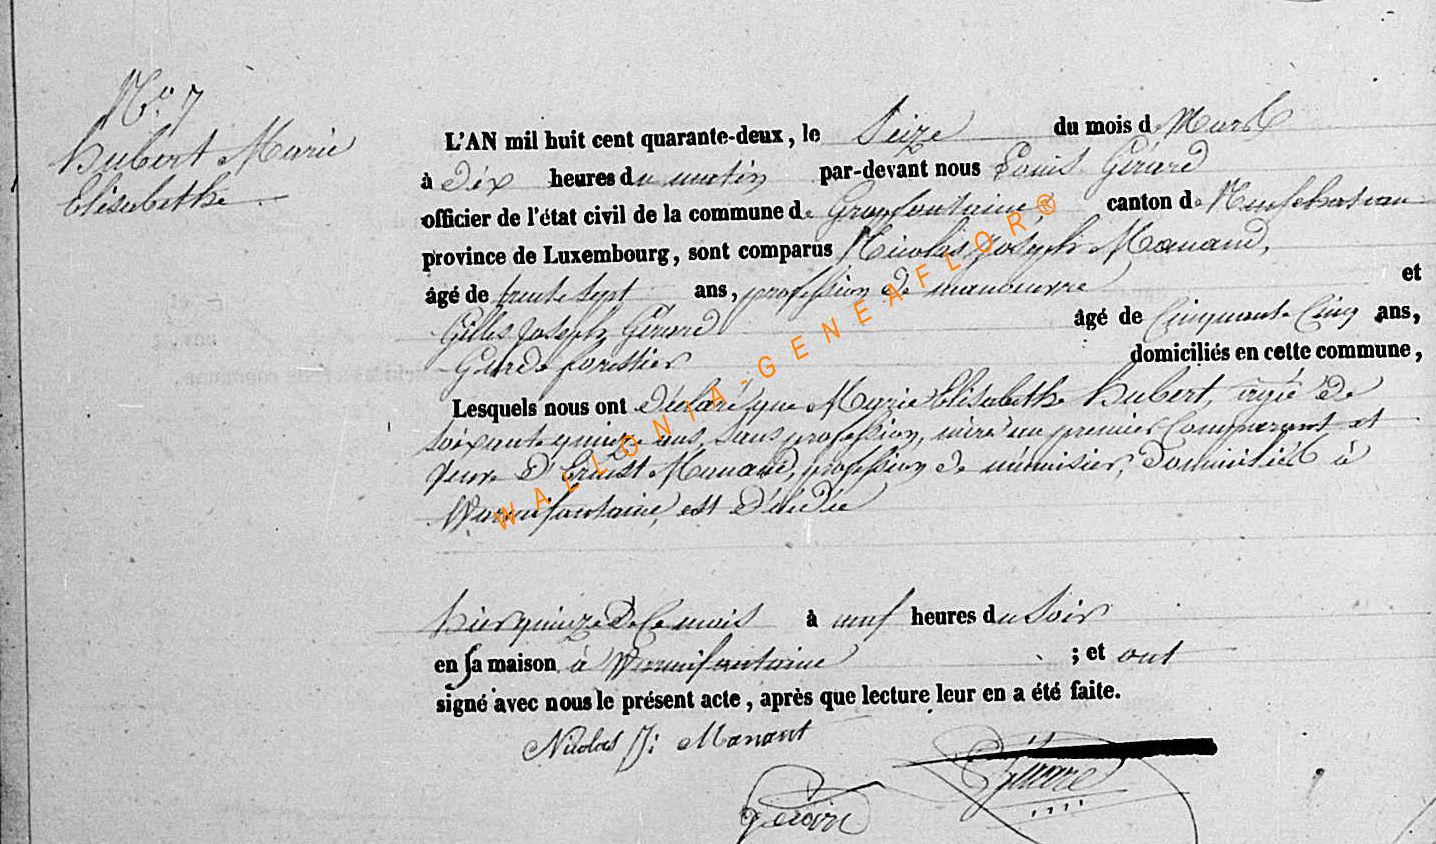 N° 7
hubert Marie
Elisabethe
L'AN mil huit cent quarante-deux, le Seize du mois de Mars
à dix heures du matin par-devant nous Louis Gérard
officier de l'état civil de la commune de Grapfontaine canton de Neufchateau
province de Luxembourg, sont comparus Nicolas Joseph Manand,
âgé de trente sept ans, profession de manoeuvre et
Gilles Joseph Gérard âgé de Cinquante Cinq ans,
Garde forestier domiciliés en cette commune,
Lesquels nous ont déclaré que Marie Elisabethe hubert, agée de
soixante quinze ans, sans profession, mère au premier Comparant et
veuve d' Manand, profession de ménuisier, domiciliés à
Warmifontaine, est décédée
hier quinze de Ce mois à neuf heures du Soir
en sa maison à Warmifontaine ; et ont
signé avec nous le présent acte, après que lecture leur en a été faite.
Nicolas J: Manant
Gérard
Gérard
WALLONIA-GENEAFLOR®